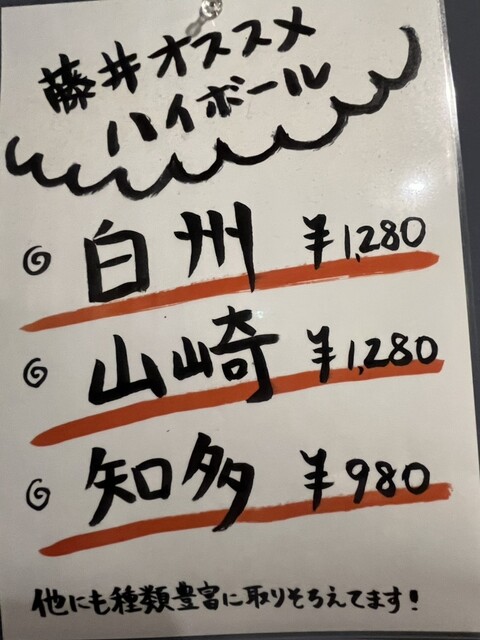 藤井オススメ
ハイボール
白州 ¥1,280
山崎 ¥1,280
知多 ¥980
他にも種類豊富に取りそろえてます!